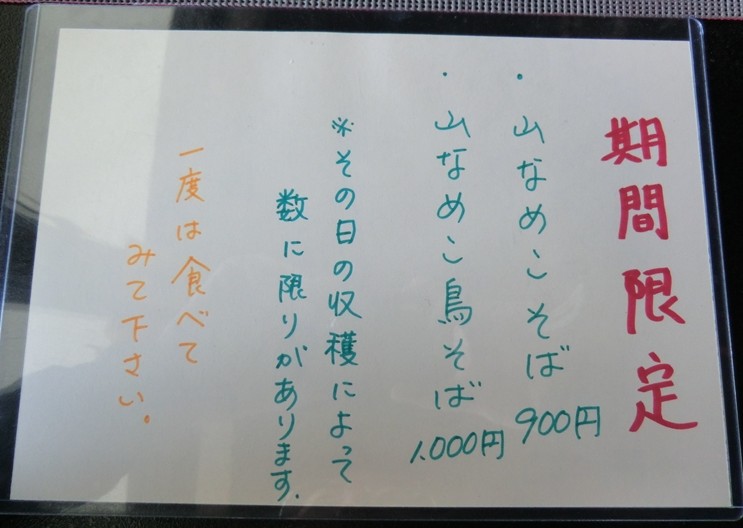 期間限定
・山なめこそば 900円
・山なめこ鳥そば 1,000円
※その日の収穫によって
数に限りがあります.
一度は食べて
みて下さい.